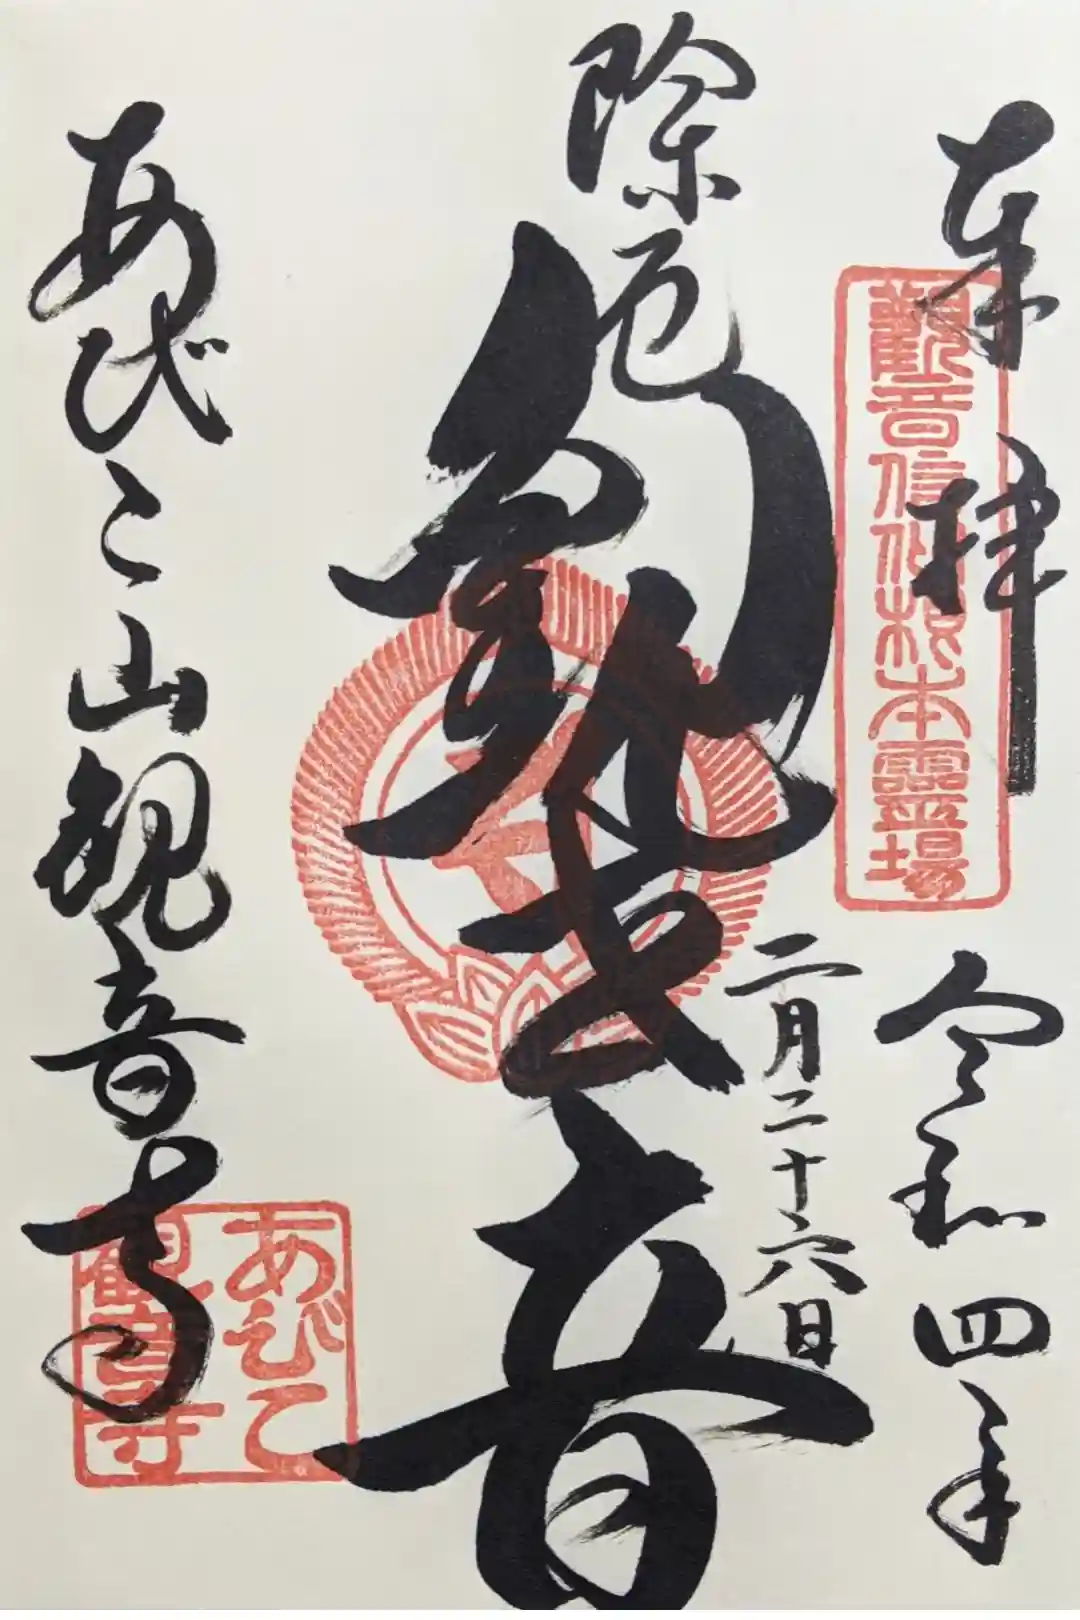 奉拝
令和四年
二月二十六日
觀音信仰根本靈場
除厄
観世音
あびこ山観音寺
あびこ
観音寺